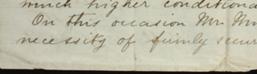 much higher conditiona
On this occasion Mr.
necessity of firmly secur